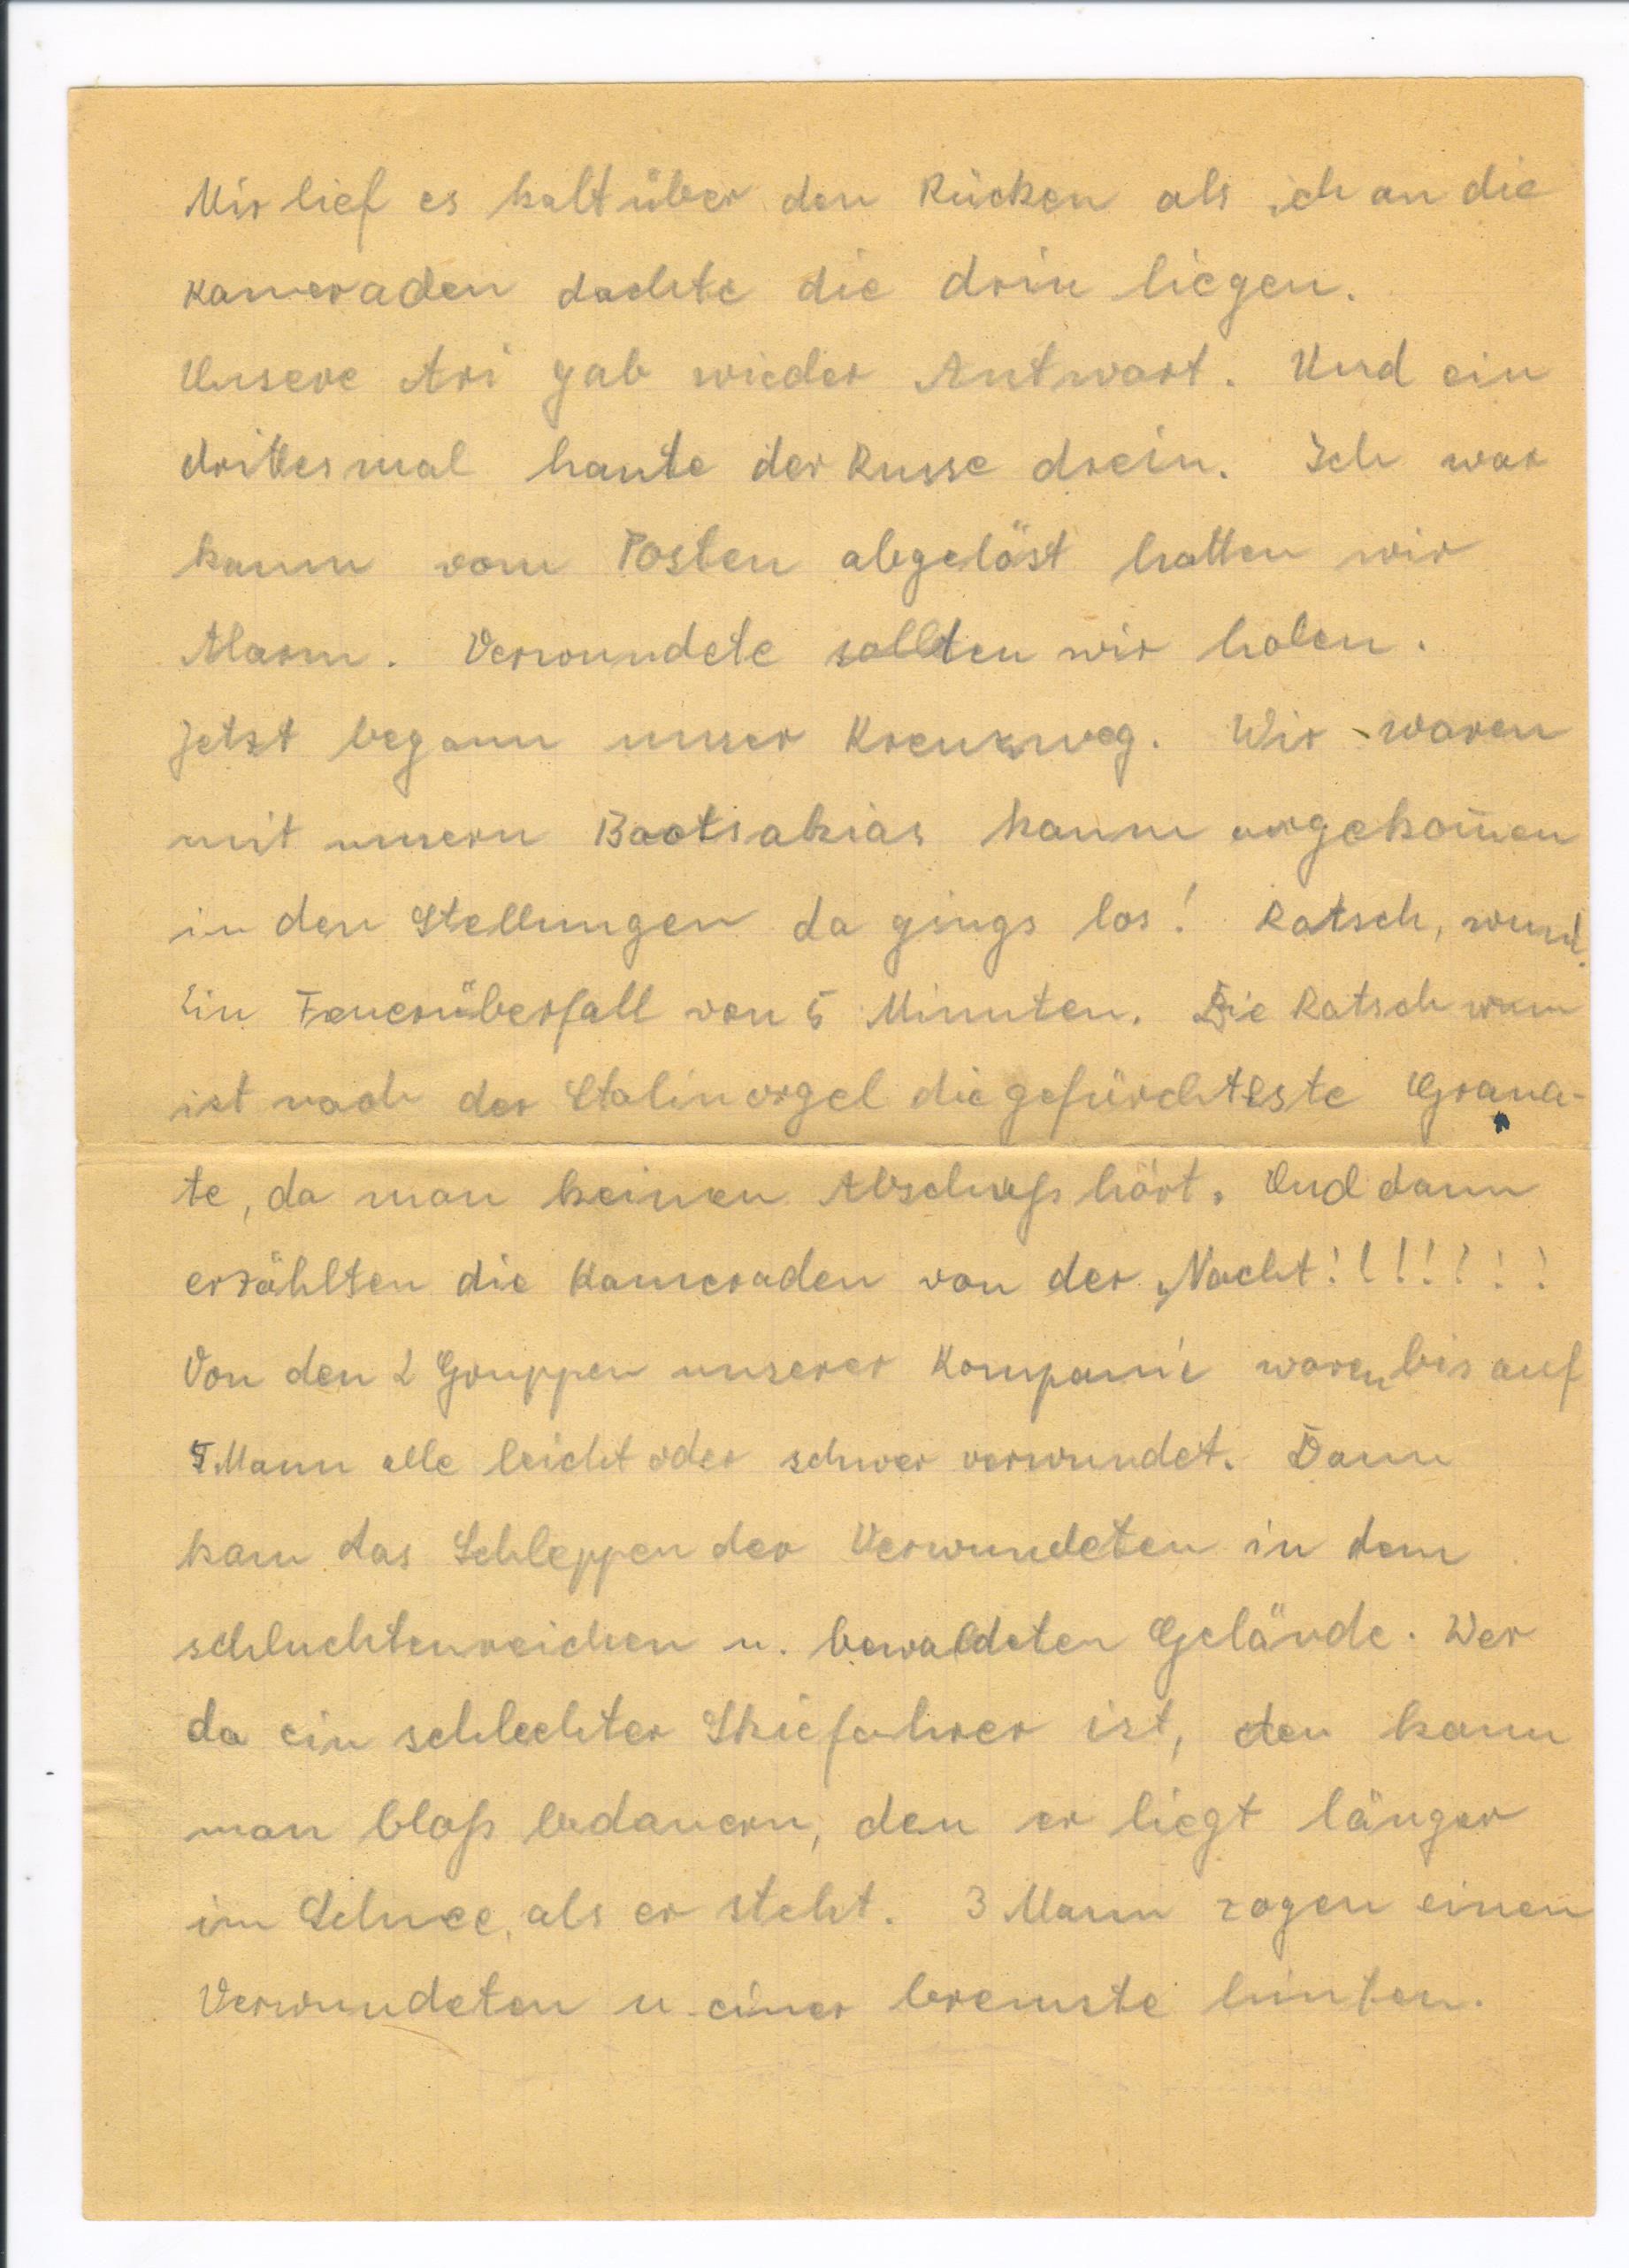 Mir lief es kalt über den Rücken als ich an die
Kameraden dachte die drin liegen.
Unsere Ari gab wieder Antwort. Und ein
drittesmal haute der Russe drein. Ich war
kaum vom Posten abgelöst hatten wir
Alarm. Verwundete sollten wir holen.
Jetzt begann unser Kreuzweg. Wir waren
mit unsern Bootsakias kaum angekom̄en
in den Stellungen da gings los! Ratsch, wum!
Ein Feuerüberfall von 5 Minuten. Die Ratsch wum
ist nach der Stalinorgel die gefürchteste Grana-
te, da man keinen Abschuß hört. Und dann
erzählten die Kameraden von der Nacht!!!!!!!
Von den 2 Gruppen unserer Kompanie waren bis auf
5 Mann alle leicht oder schwer verwundet. Dann
kam das Schleppen der Verwundeten in dem
schluchtenreichen u. bewaldeten Gelände. Wer
da ein schlechter Skiefahrer ist, den kann
man bloß bedauern, den er liegt länger
im Schnee, als er steht. 3 Mann zogen einen
Verwundeten u. einer bremste hinten.